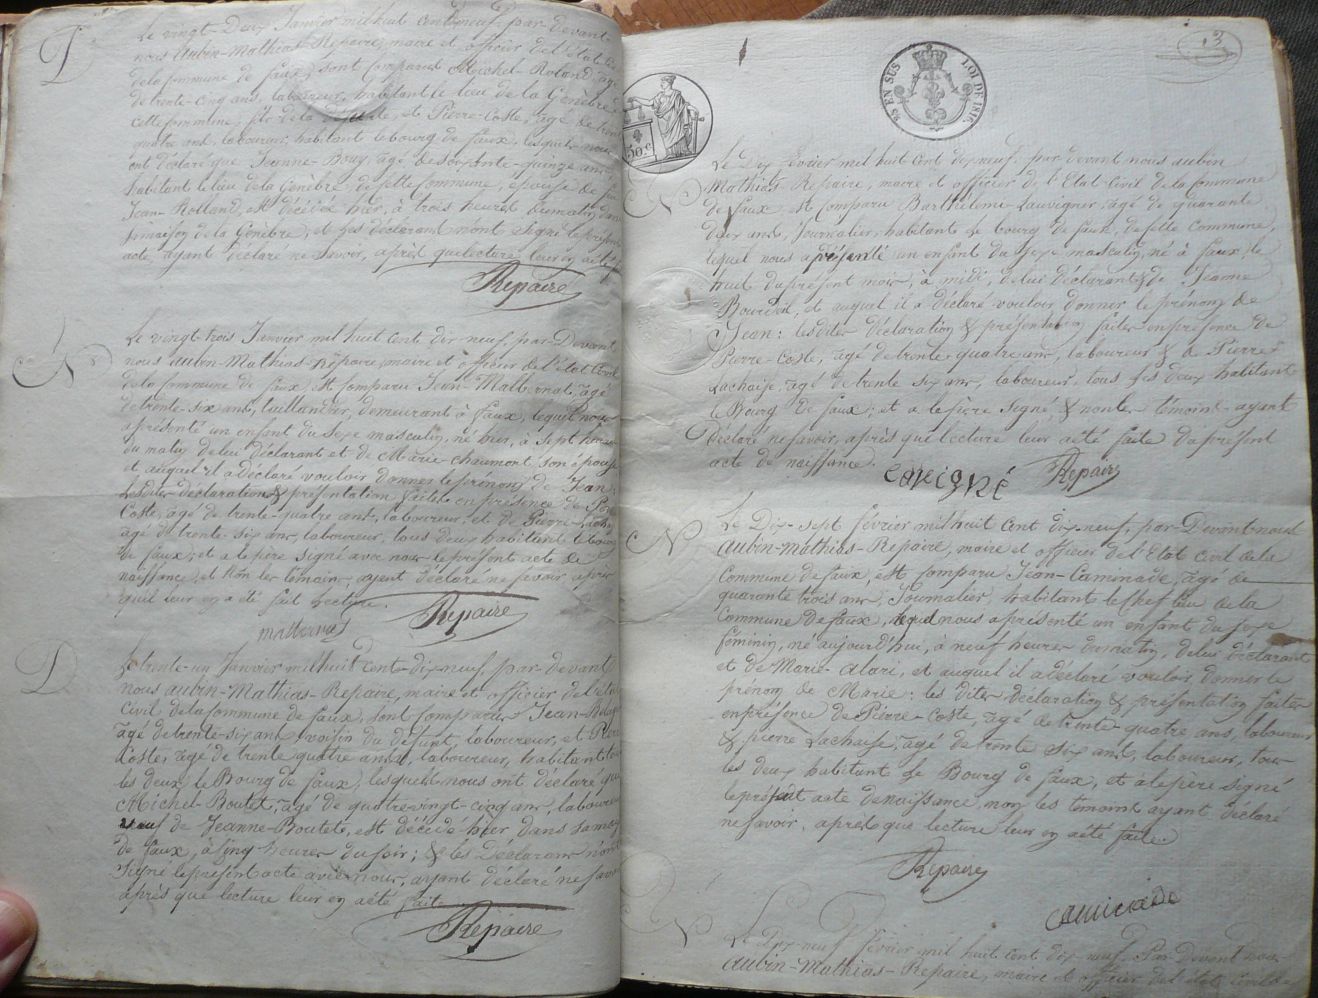 D
Le vingt-Deux Janvier mil huit cent dix neuf, par devant
nous Aubin-Mathias-Repaire, maire et officier de l'Etat Civil
de la Commune de faux, sont comparus Michel-Roland, agé
de trente-cinq ans, laboureur, habitant le lieu de la Genèbre
cette commune, et Pierre-Coste, âgé de trente
quatre ans, laboureur, habitant le bourg de faux, lesquels nous
ont déclaré que Jeanne-Bouy, agé de soixante-quinze ans
habitant le lieu de la Genèbre, de cette Commune, épouse de feu
Jean-Rolland, est décédée hier, à trois heures du matin, dans
sa maison de la Genèbre, et les déclarants n'ont signé le présent
acte, ayant déclaré ne savoir, après que lecture leur en a été
Repaire
N
Le vingt trois Janvier mil huit cent dix neuf, par-Devant
nous Aubin-Mathias-Repaire, maire et officier de l'état Civil
de la Commune de faux, est comparu Jean-Malbernat, âgé
de trente-six ans, taillandier, demeurant à faux, lequel nous
a présenté un enfant du sexe masculin, né hier, à sept heures
du matin de lui déclarant et de Marie-chaumont son épouse
et auquel il a déclaré vouloir donner le prénom de Jean
Lesdites déclaration & présentation faites en présence de Pierre
Coste, agé de trente-quatre ans, laboureur, et de Pierre-Lachaise
agé de trente-six ans, laboureur, tous deux habitant le bourg
de faux; et a le père signé avec nous le présent acte de
naissance, et non les témoins, ayent déclaré ne savoir, après
qu'il leur en a été fait lecture.
Repaire
D
Le trente-un Janvier mil huit cent-dix-neuf, par-devant
nous Aubin-Mathias-Repaire, maire et officier de l'état
Civil de la Commune de faux, sont comparus Jean-
âgé de trente-six ans voisin du défunt, laboureur, et Pierre
Coste, âgé de trente quatre ans, laboureur, habitant tous
les deux le Bourg de faux, lesquels nous ont déclaré que
Michel-Boutet, âgé de quatre-vingt-cinq ans, laboureur
veuf de Jeanne-Boutet, est décédé hier, dans sa maison
de faux, à cinq heures du soir; & les Déclarans n'ont
Signé le présent acte avec nous, ayant déclaré ne savoir
après que lecture leur en a été faite
Repaire
3
EN SUS
LOI DE 1816.
50 c
Le Dix février mil huit cent dix neuf. par devant nous aubin
Mathias Repaire, maire et officier de l'Etat Civil de la Commune
de faux est comparu Barthélemi-Lauvignier, agé de quarante
deux ans, Journalier, habitant le bourg de faux, de cette Commune,
lequel nous a présenté un enfant du sexe masculin, né à faux, le
huit du présent mois, à midi, de lui déclarant & de Jeanne
Bourdeil, et auquel il a déclaré vouloir donner le prénom de
Jean: lesdites déclaration & présentation faites en présence de
Pierre-Coste, agé de trente quatre ans, laboureur & de Pierre
Lachaise, agé de trente six ans, laboureur, tous les deux habitant
le Bourg de faux; et a le père Signé, & non les témoins ayant
déclaré ne savoir, après que lecture leur a été faite du présent
acte de naissance.
Repaire
N
Le Dix-sept février mil huit cent dix neuf, par-Devant nous
Aubin-Mathias-Repaire, maire et officier de l'Etat Civil de la
Commune de faux, est comparu Jean-Caminade, âgé de
quarante trois ans, Journalier, habitant le Chef lieu de la
Commune de faux, lequel nous a présenté un enfant du sexe
féminin, né aujourd'hui, à neuf heures du matin, de lui déclarant
et de Marie-Alari, et auquel il a déclaré vouloir donner le
prénom de Marie: les dites déclaration & présentation faites
en présence de Pierre-Coste, agé de trente-quatre ans, laboureur
& pierre Lachaise, agé de trente six ans, laboureur, tous
les deux habitant le Bourg de faux, et a le père signé
le présent acte de naissance, non les témoins ayant déclaré
ne savoir, après que lecture leur en a été faite
Repaire
caminade
N
Le Dix-neuf février mil huit cent dix neuf. Par Devant nous
Aubin-Mathias-Repaire, maire et officier de l'état Civil de